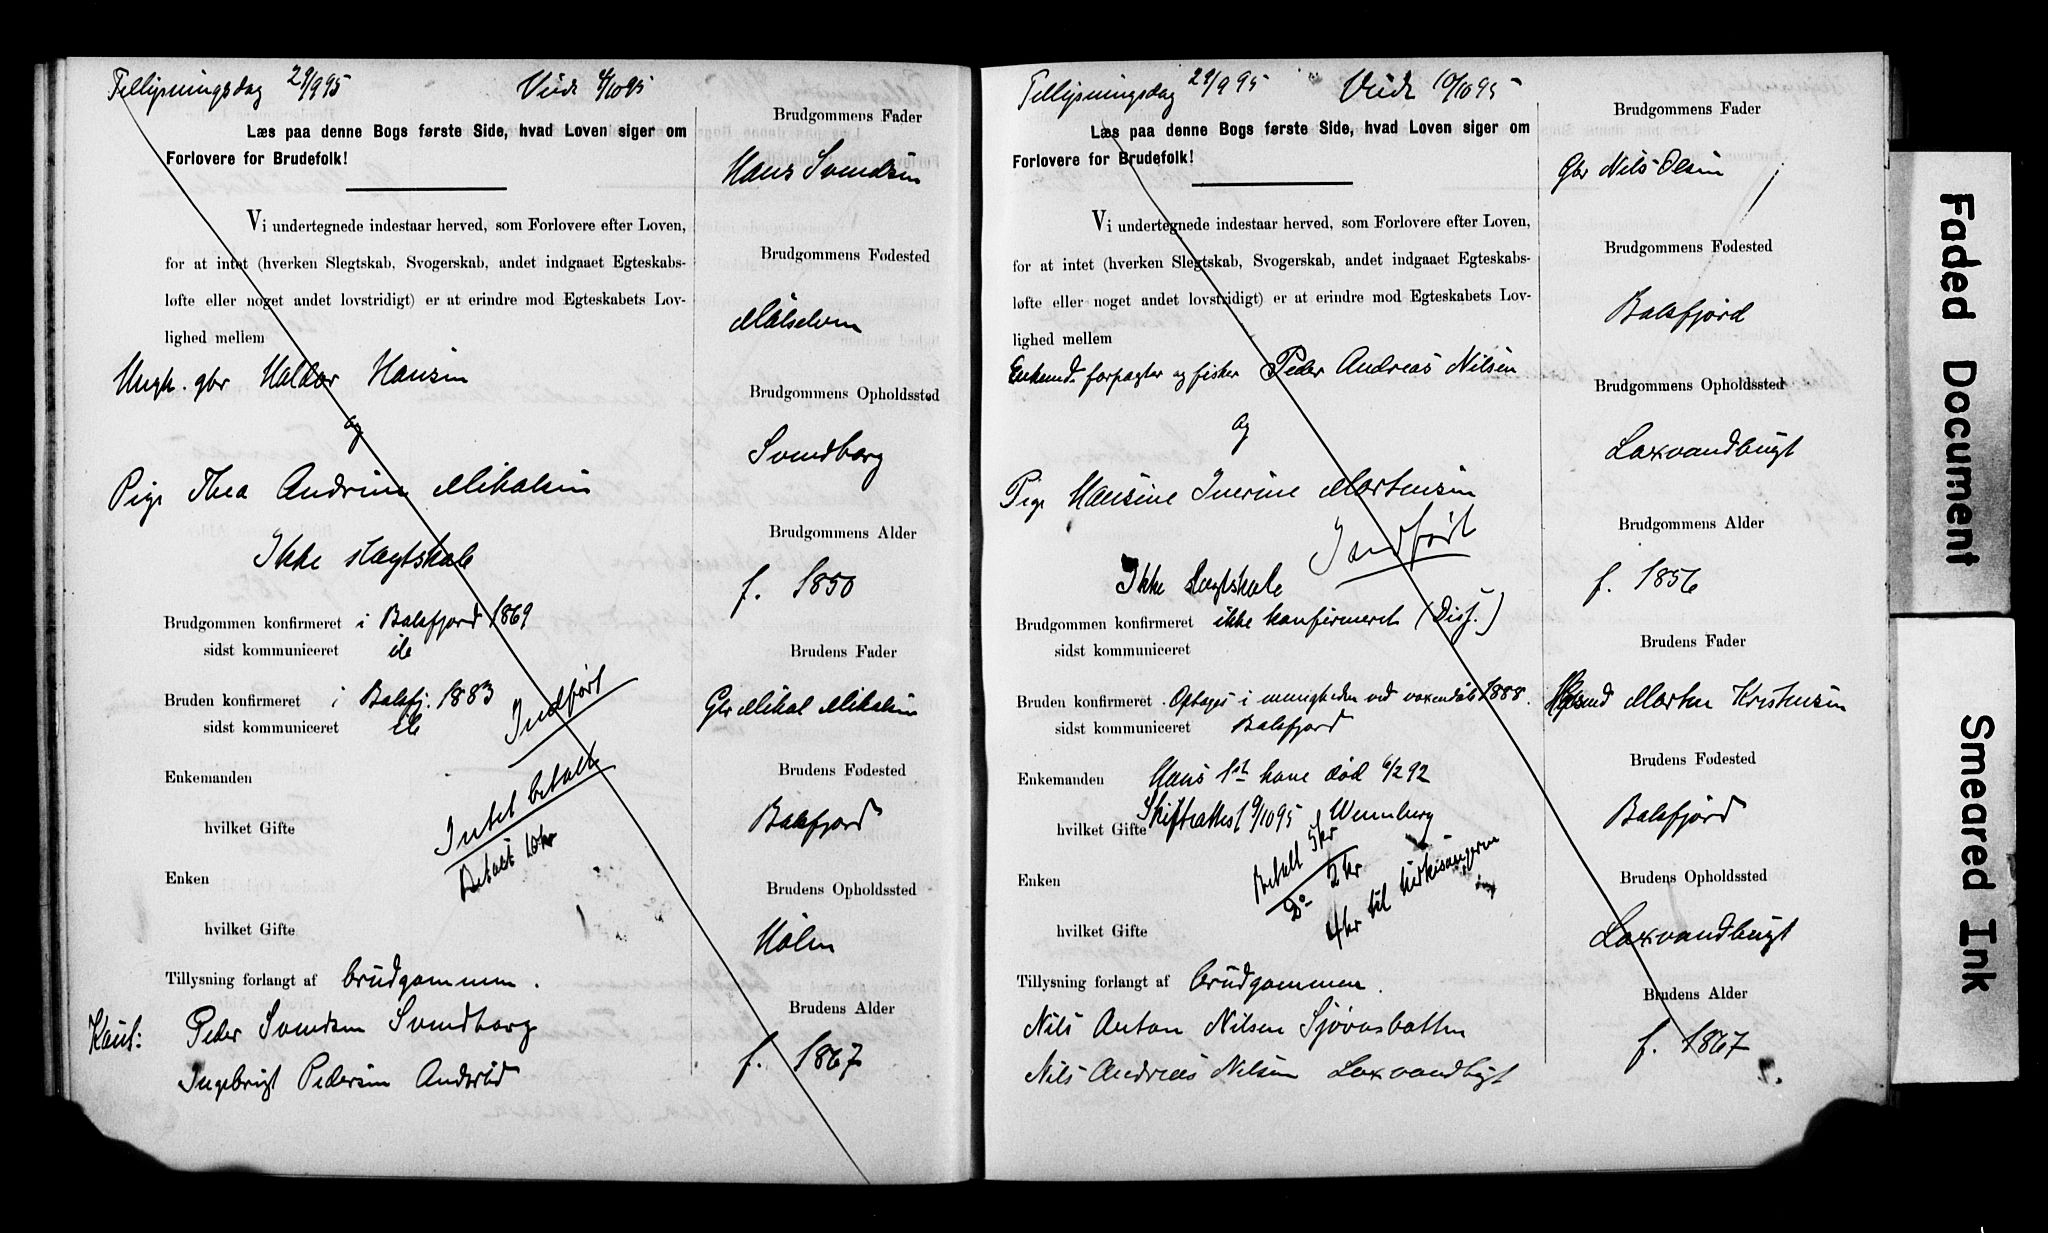 Tillysningsdag 29/9 95 Viede 4/10 95
Læs paa denne Bogs første Side, hvad Loven siger om
Forlovere for Brudefolk!
Vi undertegnede indestaar herved, som Forlovere efter Loven,
for at intet (hverken Slegtskab, Svogerskab, andet indgaaet Egteskabs-
løfte eller noget andet lovstridigt) er at erindre mod Egteskabets Lov-
lighed mellem
Ungk. gbr Haldor Hansen
og
Pige Thea Andrine Mikalsen
Ikke slægtskab
Brudgommen konfirmeret i Balsfjord 1869
sidst kommuniceret
Bruden konfirmeret i Balsfj. 1883
sidst kommuniceret
Indført
Enkemanden
Intet betalt
hvilket Gifte
Betalt 10 kr
Enken
hvilket Gifte
Tillysning forlangt af brudgommen.
Kaut: Peder Svendsen Svendborg
Ingebrigt Pedersen Andsrød
Brudgommens Fader
Hans Svendsen
Brudgommens Fødested
Målselven
Brudgommens Opholdssted
Svendborg
Brudgommens Alder
f. 1850
Brudens Fader
Gbr Mikal Mikalsen
Brudens Fødested
Balsfjord
Brudens Opholdssted
Holm
Brudens Alder
f. 1867
Tillysningsdag 29/9 95 Viede 10/10 95
Læs paa denne Bogs første Side, hvad Loven siger om
Forlovere for Brudefolk!
Vi undertegnede indestaar herved, som Forlovere efter Loven,
for at intet (hverken Slegtskab, Svogerskab, andet indgaaet Egteskabs-
løfte eller noget andet lovstridigt) er at erindre mod Egteskabets Lov-
lighed mellem
Enkemd. forpagter og fisker Peder Andreas Nilsen
og
Pige Hansine Inerine Mortensen
Indført
Ikke slægtskab
Brudgommen konfirmeret ikke konfirmeret (Diss.)
sidst kommuniceret
Bruden konfirmeret. Optages i menigheden ved voxendåb 1888.
sidst kommuniceret Balsfjord
Enkemanden Hans 1ste kone død 6/2 92
hvilket Gifte Skifteattest 9/10 95 Wennberg
Betalt 5 kr
Do 2 kr
4 kr til kirkesangeren
Enken
hvilket Gifte
Tillysning forlangt af brudgommen.
Nils Anton Nilsen Sjøvasbotten
Nils Andreas Nilsen Laxvandbugt
Brudgommens Fader
Gbr Nils Olsen
Brudgommens Fødested
Balsfjord
Brudgommens Opholdssted
Laxvandbugt
Brudgommens Alder
f. 1856
Brudens Fader
Morten Kristensen
Brudens Fødested
Balsfjord
Brudens Opholdssted
Laxvandbugt
Brudens Alder
f. 1867
Faded Document
Smeared Ink